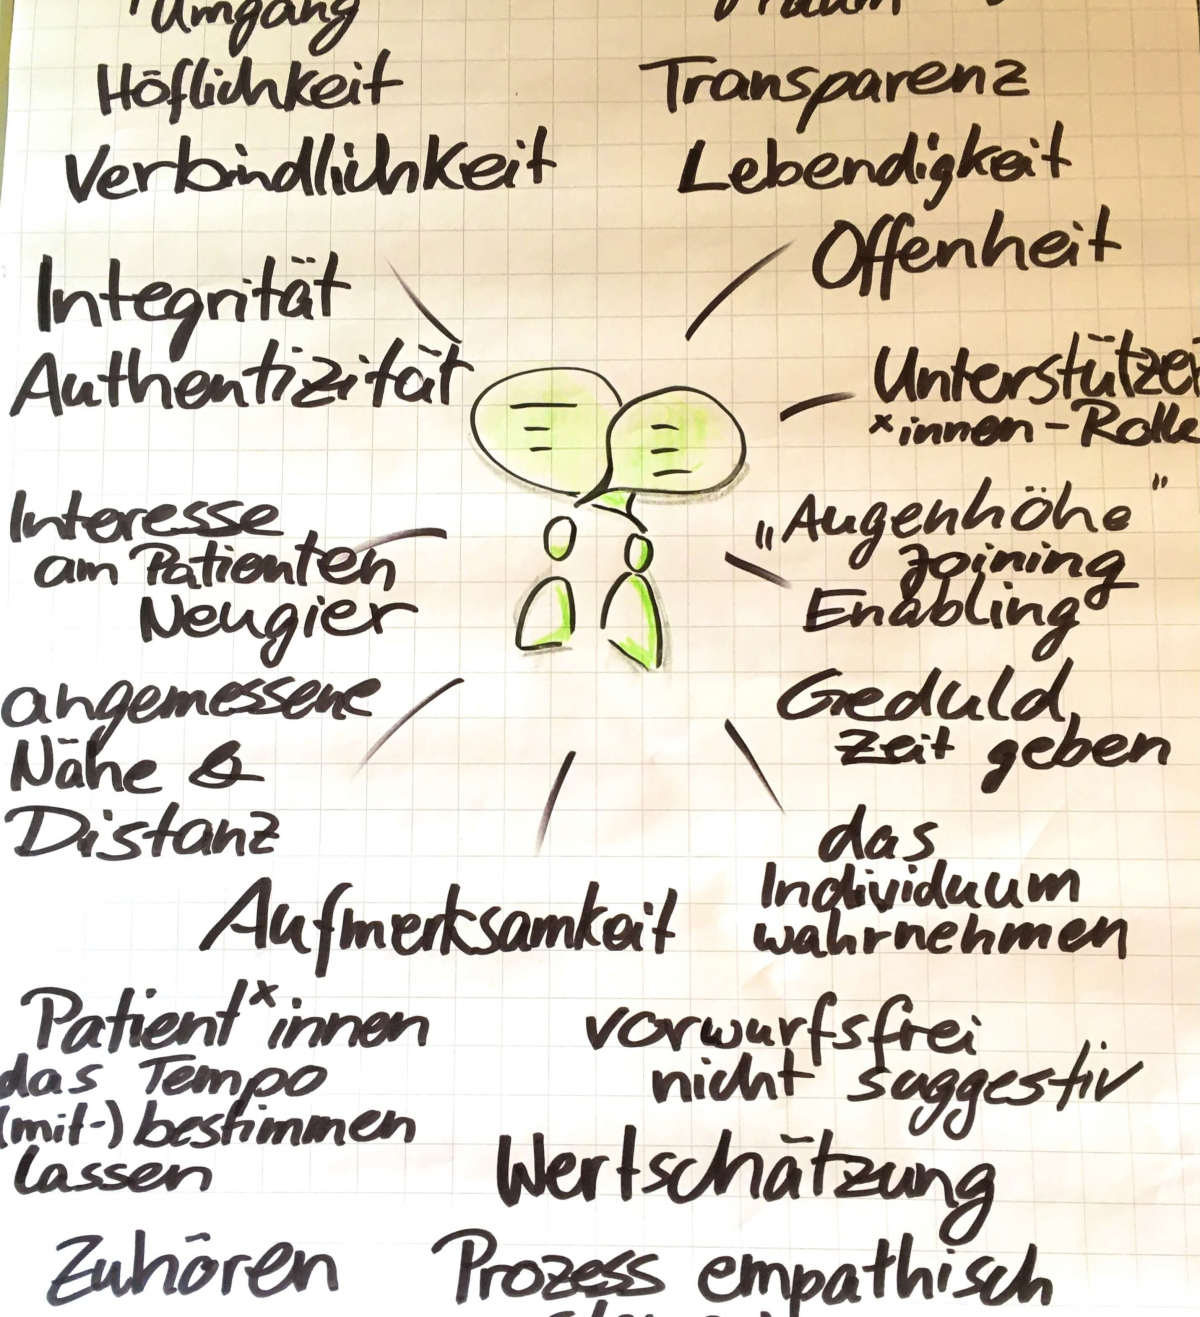 Umgang
Höflichkeit
Verbindlichkeit
Integrität
Authentizität
Interesse
am Patienten
Neugier
angemessene
Nähe &
Distanz
Transparenz
Lebendigkeit
Offenheit
Unterstützer
*innen-Rolle
„Augenhöhe"
Joining
Enabling
Geduld,
Zeit geben
das
Individuum
wahrnehmen
Aufmerksamkeit
Patient*innen
das Tempo
(mit-)bestimmen
lassen
vorwurfsfrei
nicht suggestiv
Wertschätzung
Zuhören
Prozess empathisch